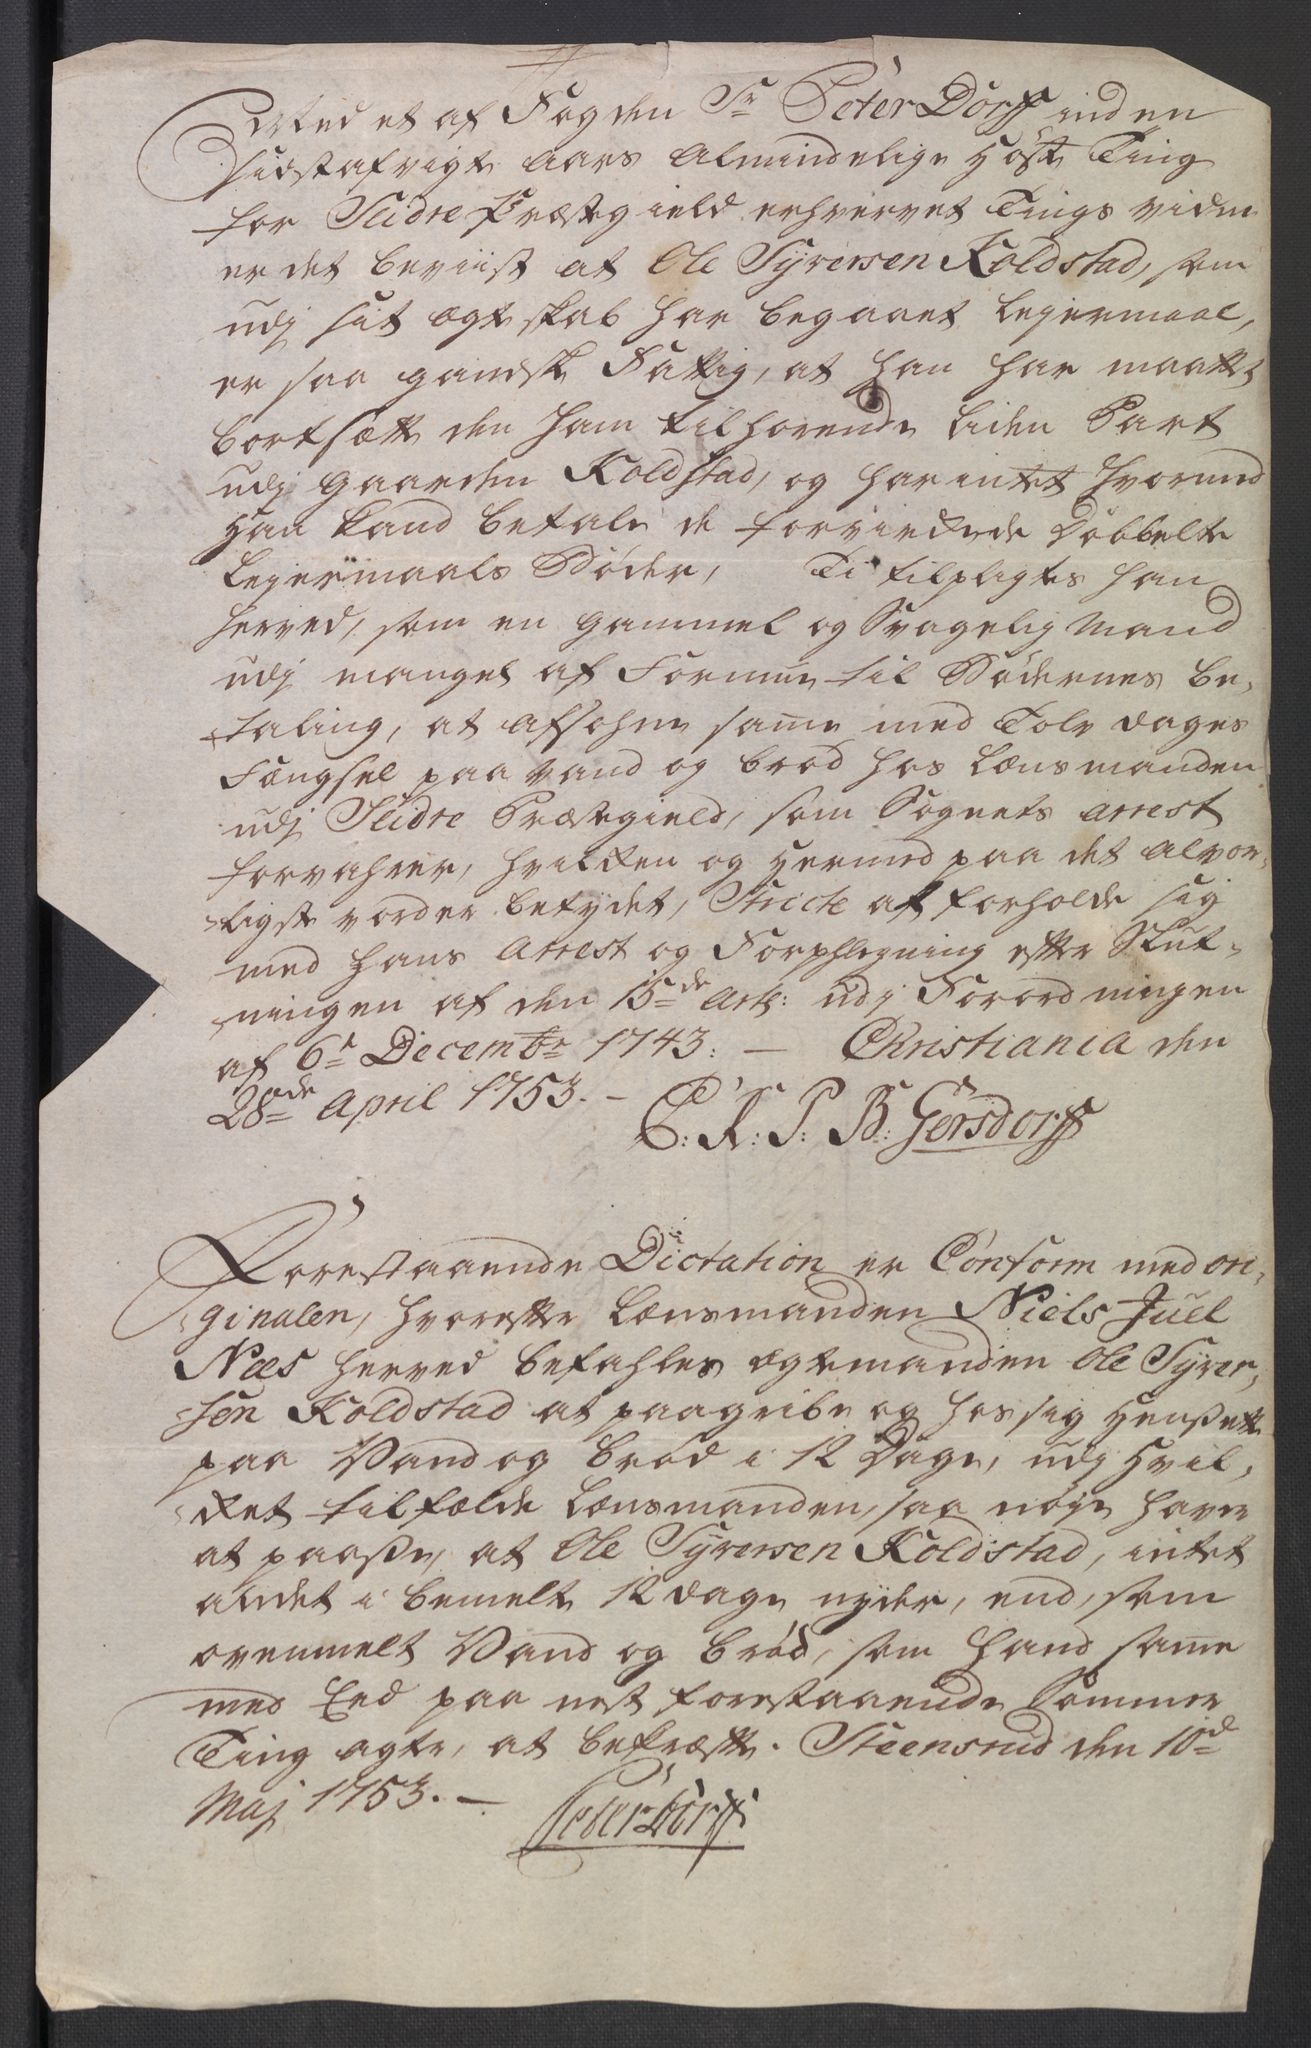 Ved et af Fogden Sr Peter Dorff inden
sidstafvigte Aars Almindelige Höste Ting
for Slidre Præstegield erhvervet Tings vidne
er det beviist at Ole Syversen Koldstad, som
udj sit ægteskab har begaaet Lejermaal,
er saa gandske Fattig, at han har maattet
bortsætte den ham tilhørende liden Part
udj gaarden Koldstad, og har intet hvormed
han kand betale de forvirkede Dobbelte
Lejermaals Bøder, Ti tilpligtes han
herved, som en gammel og Svagelig Mand
udj mangel af Formue til Bødernes be-
taling, at afsohne same med Tolv dages
Fængsel paa vand og brød hos Lænsmanden
udj Slidre Præstegield, som Sognets arrest
forvahrer, hvilken og hermed paa det alvor-
ligste vorder betydet, Stricte at forholde sig
med hans Arrest og Forphlegning efter Slut-
ningen af den 15de Artl: udj Forordningen
af 6te Decembr 1743: — Christiania den
28de April 1753. —
C: K: P: B: Gersdorff

Forestaaende Dictation er Conform med ori-
ginalen, hvorefter Lænsmanden Niels Juel
Næs herved befahles ægtemanden Ole Syver-
sen Koldstad at paagribe og hos sig hensætte
paa Vand og brød i 12 Dage, udj hvil-
ket tilfælde Lænsmanden, saa nøye haver
at paasse, at Ole Syversen Koldstad, intet
andet i bemelte 12 dage nyder, end, som
ovenmelt Vand og brød, som hand same
med Eed paa nest forestaaende Sommer
Ting agter, at bekræfte. Steensrud den 10de
Maj 1753. —
Peter Dorff